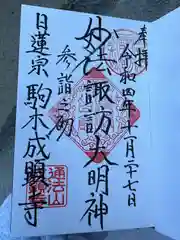 奉拝
令和四年十一月二十七日
妙法諏訪大明神
参詣之砌
日蓮宗 駒木成顕寺
通法山